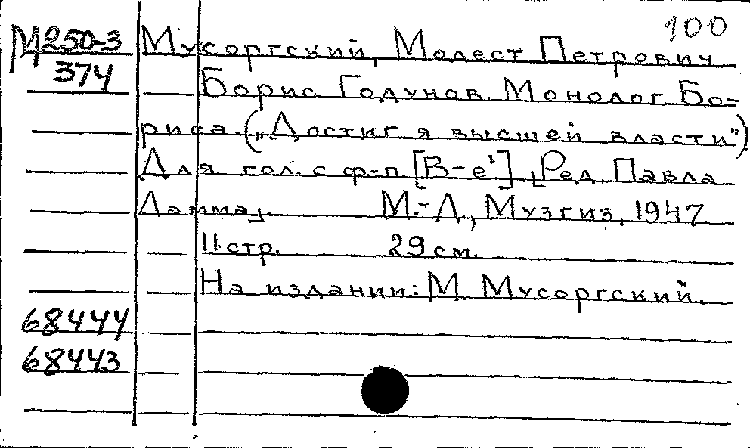 100
М250-3 Мусоргский, Модест Петрович
374 Борис Годунов. Монолог Бо-
риса. („Достиг я высшей власти")
Для гол. с ф-п [B-e¹] [Ред. Павла
Ламма]. М.-Л., Музгиз, 1947
11 стр. 29 см.
На издании: М. Мусоргский.
68444
68443